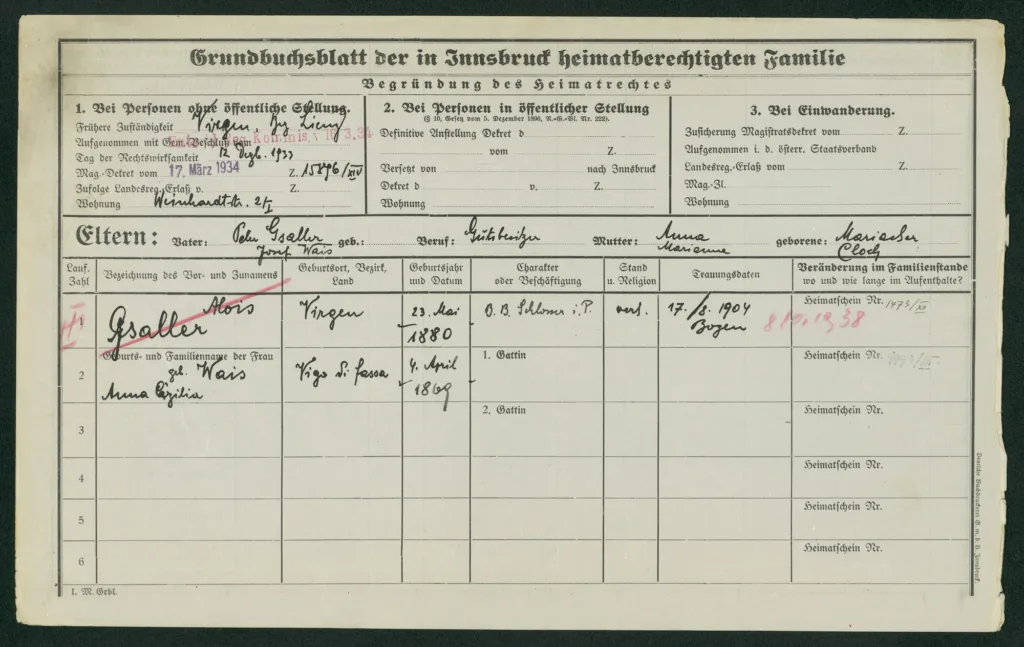 Grundbuchsblatt der in Innsbruck heimatberechtigten Familie
Begründung des Heimatrechtes
1. Bei Personen ohne öffentliche Stellung.
Frühere Zuständigkeit Virgen, Bz Lienz
Aufgenommen mit Gem. Beschluß vom
Tag der Rechtswirksamkeit 12. Dezb. 1933
Mag.-Dekret vom 17. März 1934 Z. 15896/XIV
Zufolge Landesreg.-Erlaß v. Z.
Wohnung Weinhardtstr. 2/I
2. Bei Personen in öffentlicher Stellung
(§ 10, Gesetz vom 5. Dezember 1896, R.-G.-Bl. Nr. 222).
Definitive Anstellung Dekret d
vom Z.
Versetzt von nach Innsbruck
Dekret d v. Z.
Wohnung
3. Bei Einwanderung.
Zusicherung Magistratsdekret vom Z.
Aufgenommen i. d. österr. Staatsverband
Landesreg.-Erlaß vom Z.
Mag.-Zl.
Wohnung
Eltern: Vater: Peter Gsaller geb.: Beruf: Gutsbesitzer Mutter: Anna geborene: Mariacher
Josef Wais Marianna Cloch
Lauf. Zahl
Bezeichnung des Vor- und Zunamens
Geburtsort, Bezirk, Land
Geburtsjahr und Datum
Charakter oder Beschäftigung
Stand u. Religion
Trauungsdaten
Veränderung im Familienstande
wo und wie lange im Aufenthalte?
1 Gsaller Alois Virgen 23. Mai 1880 B.B. Schlosser i.P. verh. 17./8. 1904 Bozen Heimatschein Nr. 1473/XI
Geburts- und Familienname der Frau
2 geb. Wais Vigo di fassa 4. April 1869 1. Gattin Heimatschein Nr.
Anna Cäzilia
3 2. Gattin Heimatschein Nr.
4 Heimatschein Nr.
5 Heimatschein Nr.
6 Heimatschein Nr.
I. M. Grbl.
Deutsche Buchdruckerei G. m. b. H. Innsbruck.